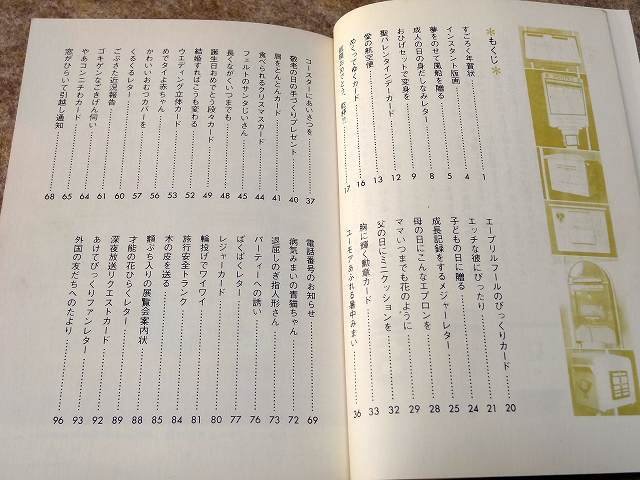 ＊もくじ＊
すごろく年賀状……1
インスタント版画……4
夢をのせて風船を贈る……5
成人の日の身だしなみレター……8
おひげセットで変身を……9
聖バレンタインデーカード……12
めくってめくカード……13
愛の航空便……16
17
エープリルフールのびっくりカード……20
エッチな彼にぴったり……21
子どもの日に贈る……24
成長記録をするメジャーレター……25
母の日にこんなエプロンを……28
ママいつまでも花のように……29
父の日にミニクッションを……32
胸に輝く勲章カード……33
ユーモアあふれる暑中みまい……36
コースターにあいさつを……37
敬老の日の手づくりプレゼント……40
肩をとんとんカード……41
食べられるクリスマスカード……44
フェルトのサンタじいさん……45
長くながくいつまでも……48
誕生日おめでとう段々カード……49
結婚すればこうも変わる……52
ウエディング立体カード……53
めでタイよ赤ちゃん……56
かわいいおむつカバーを……57
くるくるレター……60
ごぶさた近況報告……61
ゴキゲンなごきげん伺い……64
やあコンニチわカード……65
窓がひらいて引越し通知……68
電話番号のお知らせ……69
病気みまいの青猫ちゃん……72
退屈しのぎ指人形さん……73
パーティーへの誘い……76
ぱくぱくレター……77
レジャーカード……80
輪投げでワイワイ……81
旅行安全トランク……84
木の皮を送る……85
額ぶち入りの展覧会案内状……88
才能の花ひらくレター……89
深夜放送リクエストカード……92
あけてびっくりファンレター……93
外国の友だちへのたより……96